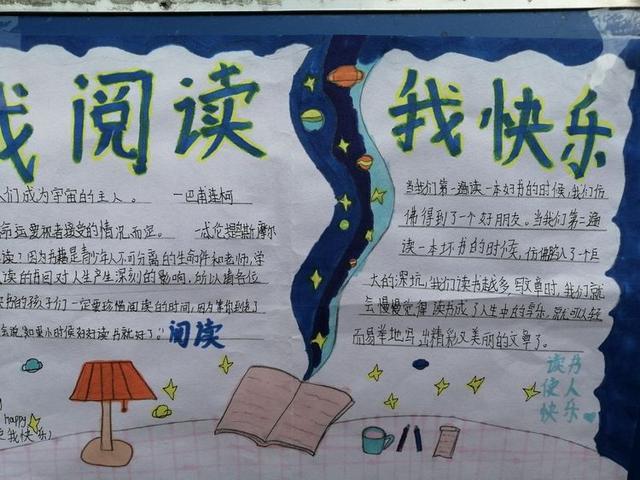 我阅读
我快乐
们成为宇宙的主人。 一巴甫连柯
命运要视者接受的情况而定。
读？因为书籍是青少年人不可分离的生命伴和老师，学
读的书回对人生产生深刻的影响，所以请各位
的孩子们一定要珍惜阅读的时间，因为
知里小时候好好读书就好了。
阅读
happy
我快乐）
当我们第一遍读一本好书的时候，我们仿
佛得到了一个好朋友。当我们第二遍
读一本坏书的时候，仿佛踏入了一个巨
大的深坑，我们读书越多写文章时，我们就
会慢慢觉得读书成了人生中的享乐，就可以轻
而易举地写出精彩又美丽的文章了。
读书
使人
快乐